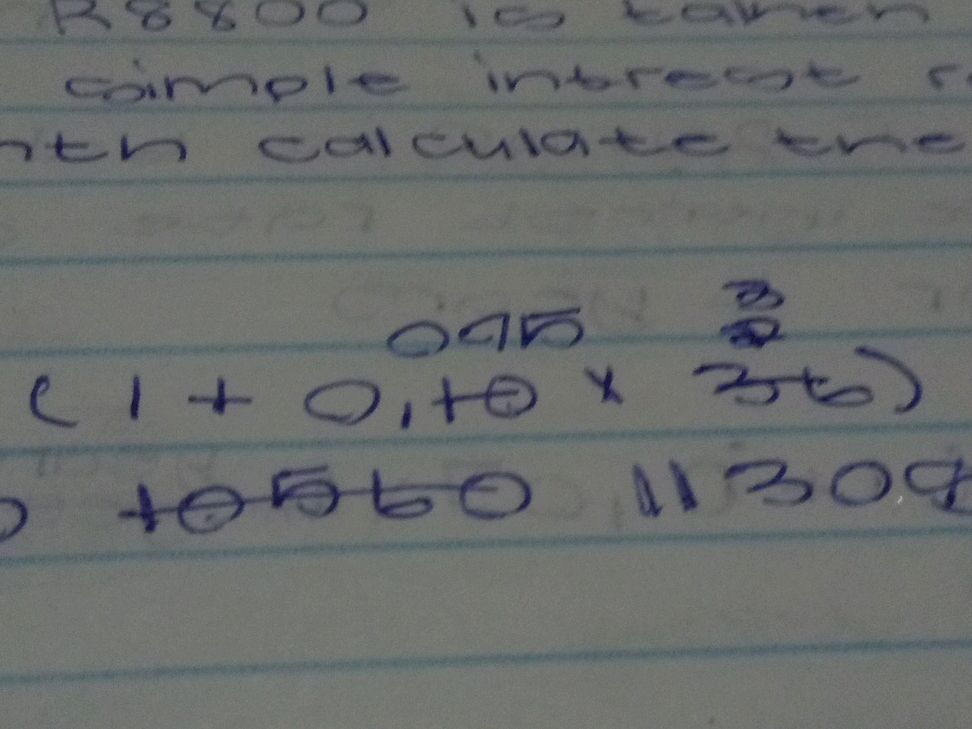 R8800 is taken
simple intrest
nth calculate the
095 3
(1 + 0,10 × 36)
10560 11309